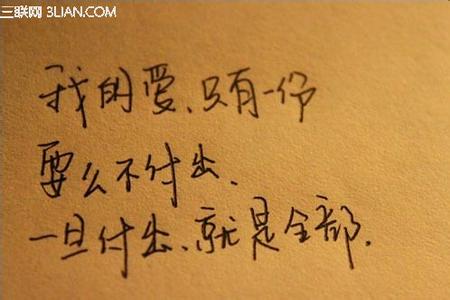 三联网 3LIAN.COM
我的爱、只有一份
要么不付出、
一旦付出、就是全部.